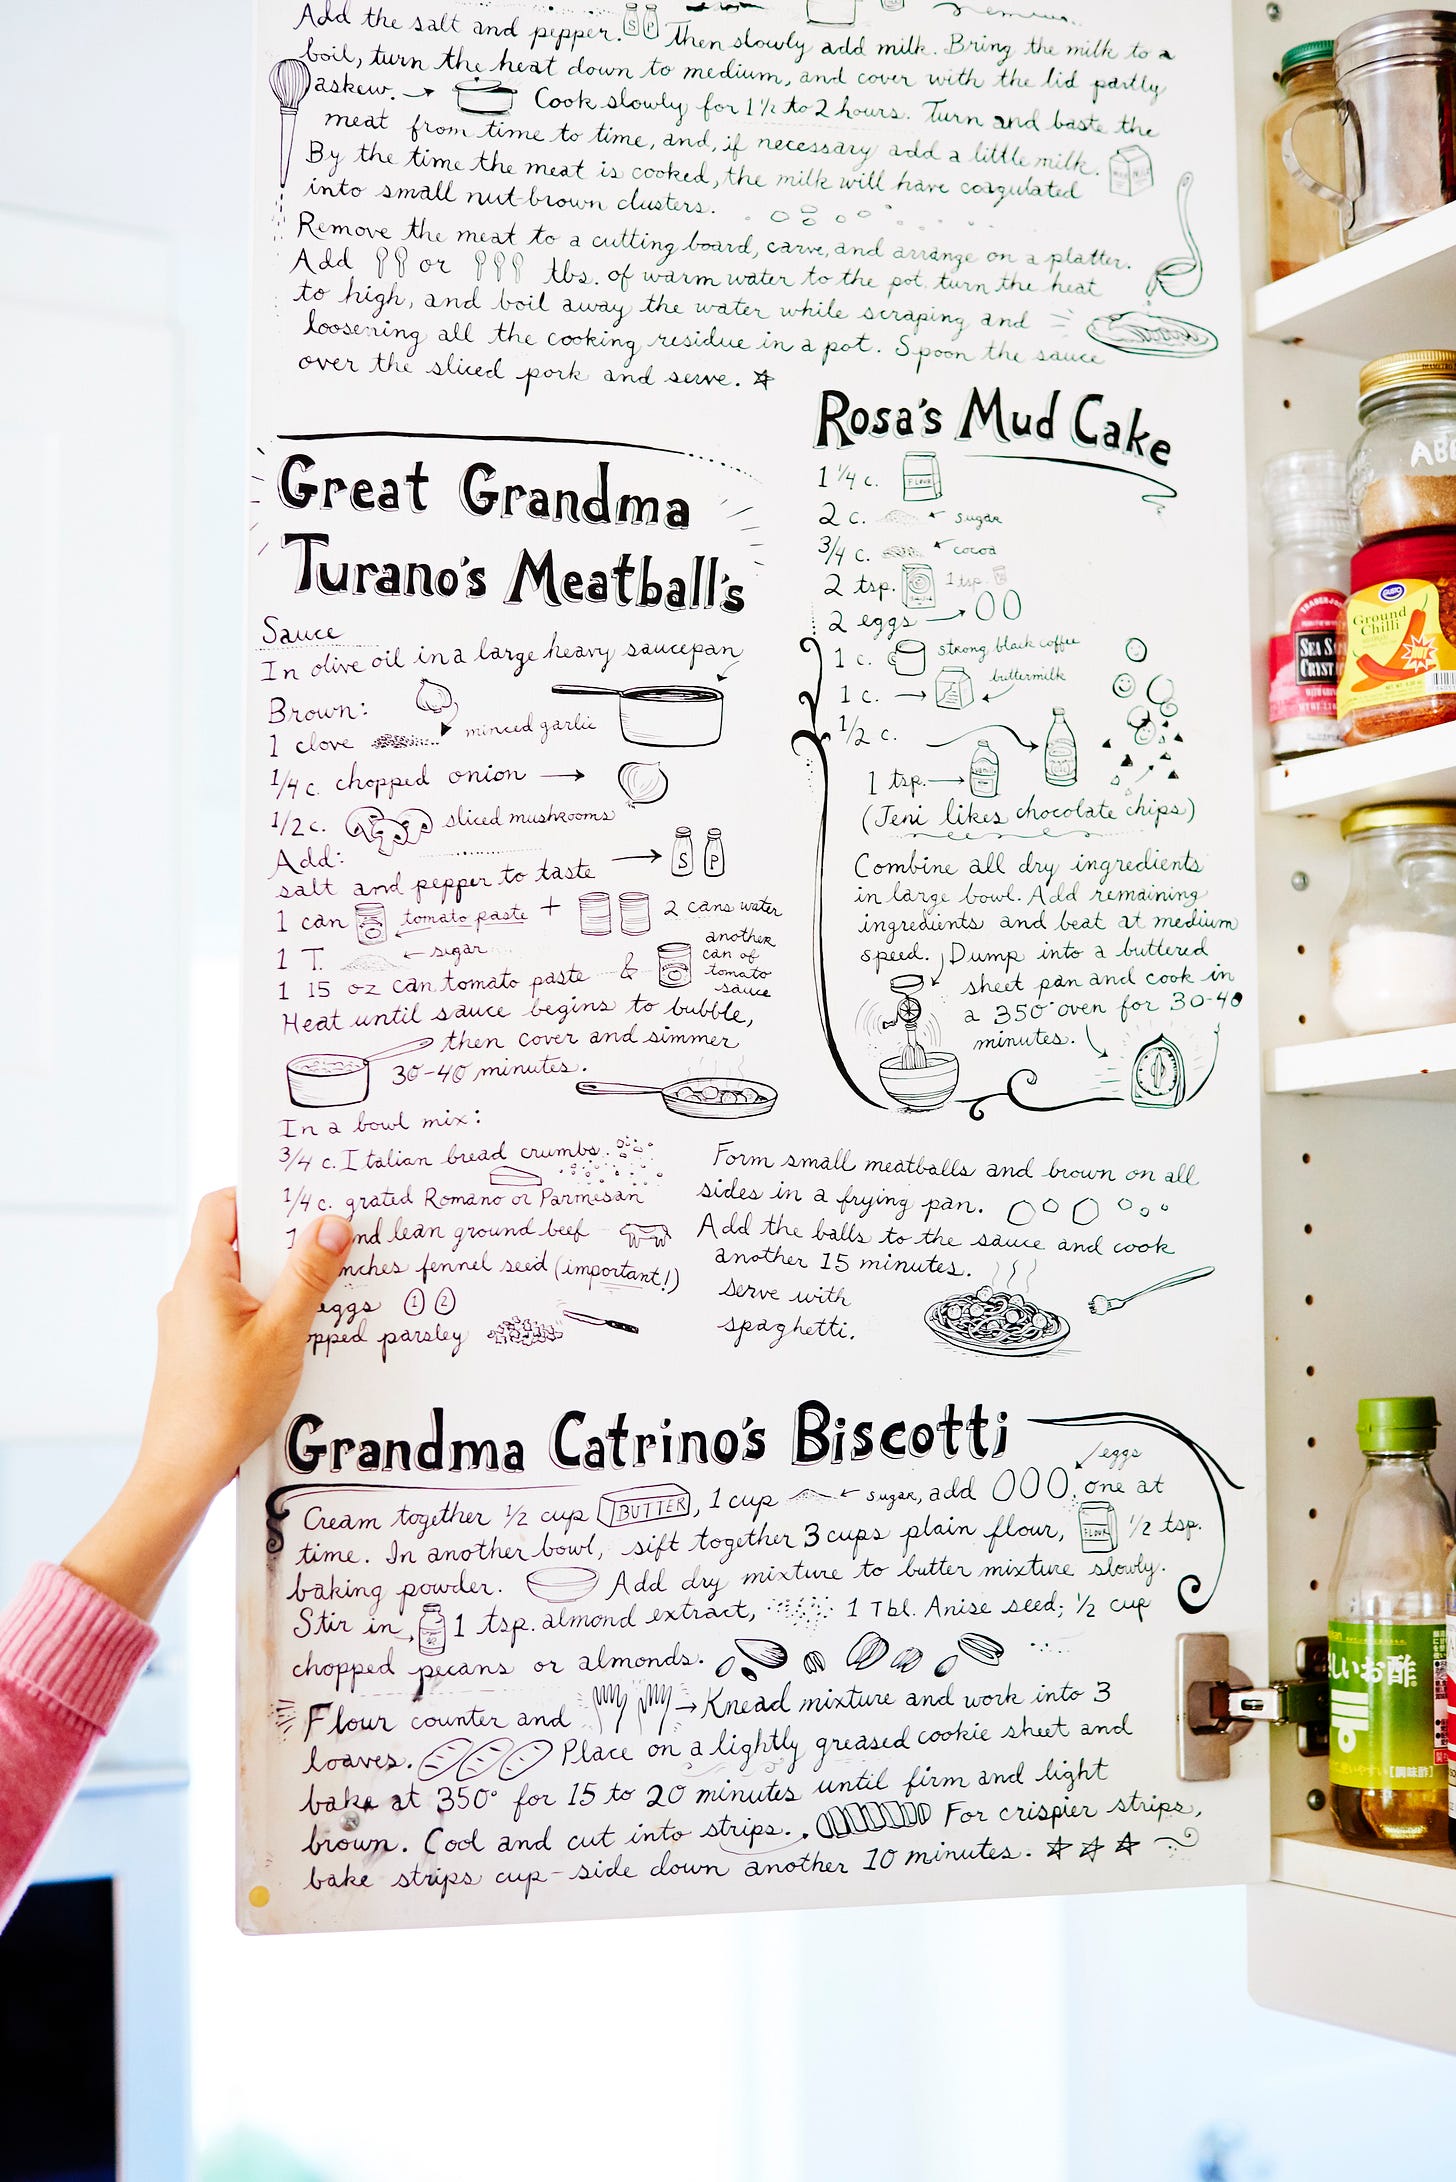 Add the salt and pepper. S P Then slowly add milk. Bring the milk to a
boil, turn the heat down to medium, and cover with the lid partly
askew. → Cook slowly for 1 1/2 to 2 hours. Turn and baste the
meat from time to time, and, if necessary add a little milk.
By the time the meat is cooked, the milk will have coagulated
into small nut-brown clusters.
Remove the meat to a cutting board, carve, and arrange on a platter.
Add or tbs. of warm water to the pot, turn the heat
to high, and boil away the water while scraping and
loosening all the cooking residue in a pot. Spoon the sauce
over the sliced pork and serve.
Great Grandma
Turano's Meatball's
Sauce
In olive oil in a large heavy saucepan
Brown:
1 clove minced garlic
1/4 c. chopped onion →
1/2 c. sliced mushrooms
Add:
salt and pepper to taste → S P
1 can tomato paste + 2 cans water
1 T. ← sugar
1 15 oz can tomato paste & another
can of
tomato
sauce
Heat until sauce begins to bubble,
then cover and simmer
30-40 minutes.
In a bowl mix:
3/4 c. Italian bread crumbs
1/4 c. grated Romano or Parmesan
1 nd lean ground beef
nches fennel seed (important!)
eggs 1 2
opped parsley
Form small meatballs and brown on all
sides in a frying pan.
Add the balls to the sauce and cook
another 15 minutes.
serve with
spaghetti.
Rosa's Mud Cake
1 1/4 c. FLOUR
2 c. ← sugar
3/4 c. ← cocoa
2 tsp. 1 tsp.
2 eggs →
1 c. strong black coffee
1 c. → buttermilk
1/2 c.
1 tsp. → vanilla
(Jeni likes chocolate chips)
Combine all dry ingredients
in large bowl. Add remaining
ingredients and beat at medium
speed. Dump into a buttered
sheet pan and cook in
a 350° oven for 30-40
minutes.
Grandma Catrino's Biscotti
Cream together 1/2 cup BUTTER, 1 cup ← sugar, add eggs one at
time. In another bowl, sift together 3 cups plain flour, FLOUR 1/2 tsp.
baking powder. Add dry mixture to butter mixture slowly.
Stir in 1 tsp. almond extract, 1 Tbl. Anise seed; 1/2 cup
chopped pecans or almonds.
Flour counter and → Knead mixture and work into 3
loaves. Place on a lightly greased cookie sheet and
bake at 350° for 15 to 20 minutes until firm and light
brown. Cool and cut into strips. For crispier strips,
bake strips cup-side down another 10 minutes.
TRADER JO
SEA SA
CRYST
Ground
Chilli
HOT
しいお酢
[調味酢]